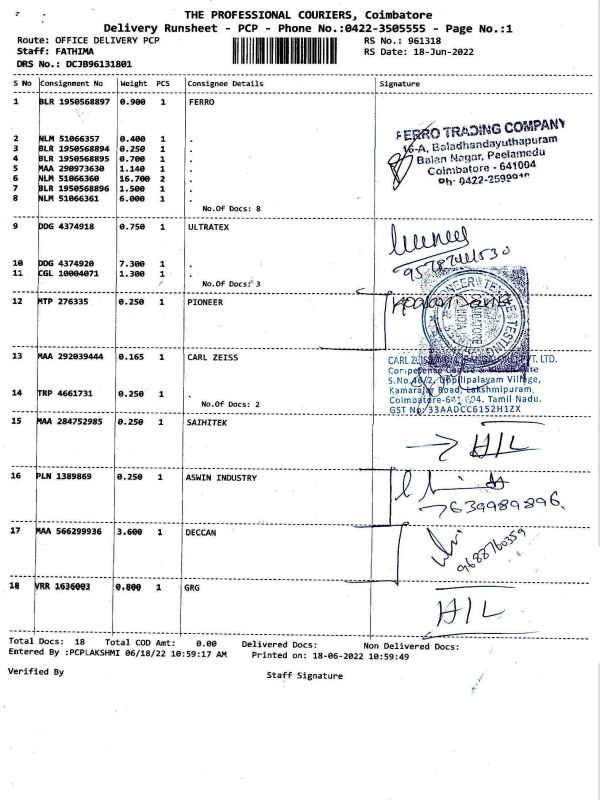 THE PROFESSIONAL COURIERS, Coimbatore
Delivery Runsheet - PCP - Phone No.:0422-3505555 - Page No.:1
Route: OFFICE DELIVERY PCP RS No.: 961318
Staff: FATHIMA RS Date: 18-Jun-2022
DRS No.: DCJB96131801
S No Consignment No Weight PCS Consignee Details Signature
1 BLR 1950568897 0.900 1 FERRO
FERRO TRADING COMPANY
16-A, Baladhandayuthapuram
Balan Nagar, Peelamedu
Coimbatore - 641004
Ph: 0422-2599918
2 NLM 51066357 0.400 1 .
3 BLR 1950568894 0.250 1 .
4 BLR 1950568895 0.700 1 .
5 MAA 290973630 1.140 1 .
6 NLM 51066360 16.700 2 .
7 BLR 1950568896 1.500 1 .
8 NLM 51066361 6.000 1 .
No.Of Docs: 8
9 DDG 4374918 0.750 1 ULTRATEX
10 DDG 4374920 7.300 1 .
11 CGL 10004071 1.300 1 .
No.Of Docs: 3
12 MTP 276335 0.250 1 PIONEER
PIONEER TEXTILE TESTING
13 MAA 292039444 0.165 1 CARL ZEISS
CARL ZEISS PVT. LTD.
S.No.40/2, Uppilipalayam Village,
Kamarajar Road, Lakshmipuram,
Coimbatore-641 004. Tamil Nadu.
GST No: 33AADCC6152H1ZX
14 TRP 4661731 0.250 1 .
No.Of Docs: 2
15 MAA 284752985 0.250 1 SAIHITEK
H/L
16 PLN 1389869 0.250 1 ASWIN INDUSTRY
7639989896.
17 MAA 566299936 3.600 1 DECCAN
9688760359
18 VRR 1636003 0.800 1 GRG
H/L
Total Docs: 18 Total COD Amt: 0.00 Delivered Docs: Non Delivered Docs:
Entered By :PCPLAKSHMI 06/18/22 10:59:17 AM Printed on: 18-06-2022 10:59:49
Verified By Staff Signature